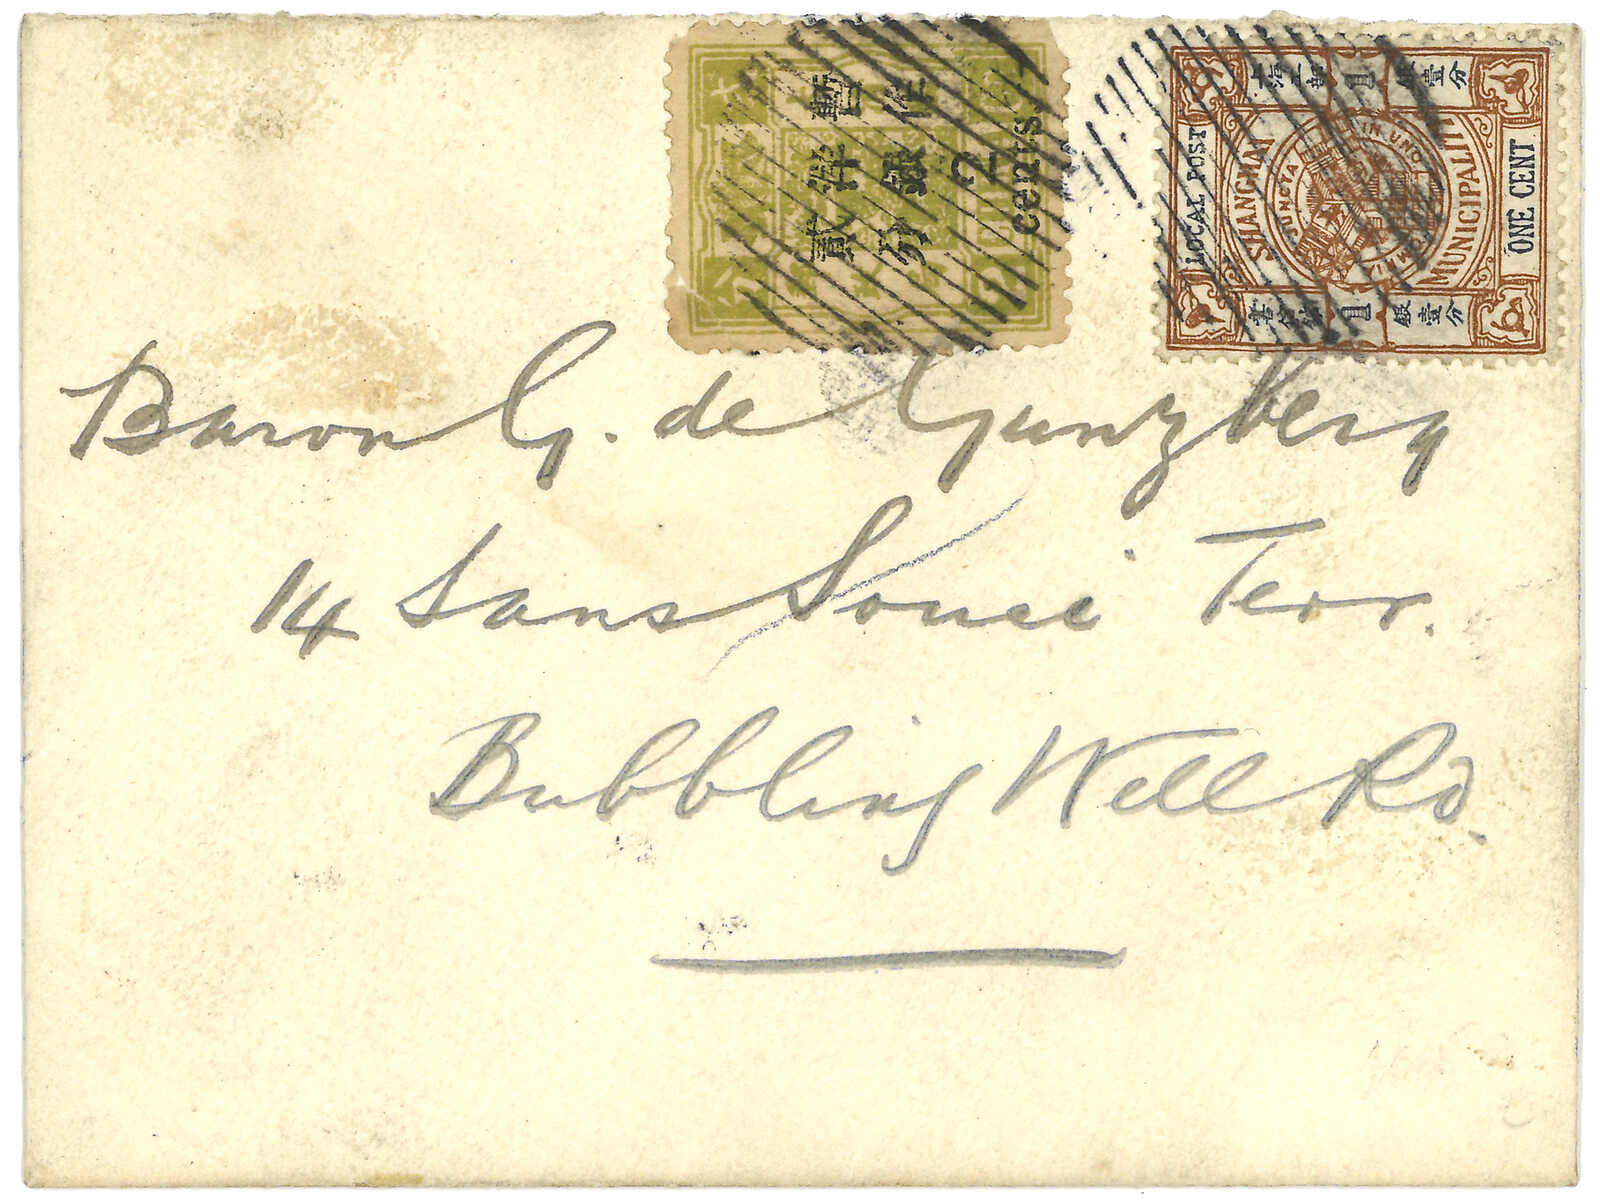 暫作洋銀貳分
2
cents.
LOCAL POST
SHANGHAI
MUNICIPALITY
ONE CENT
1
銀壹分
JUNCTA IN UNO
1
銀壹分
Baron G. de Gunzberg
14 Sans Souci Terr.
Bubbling Well Rd.